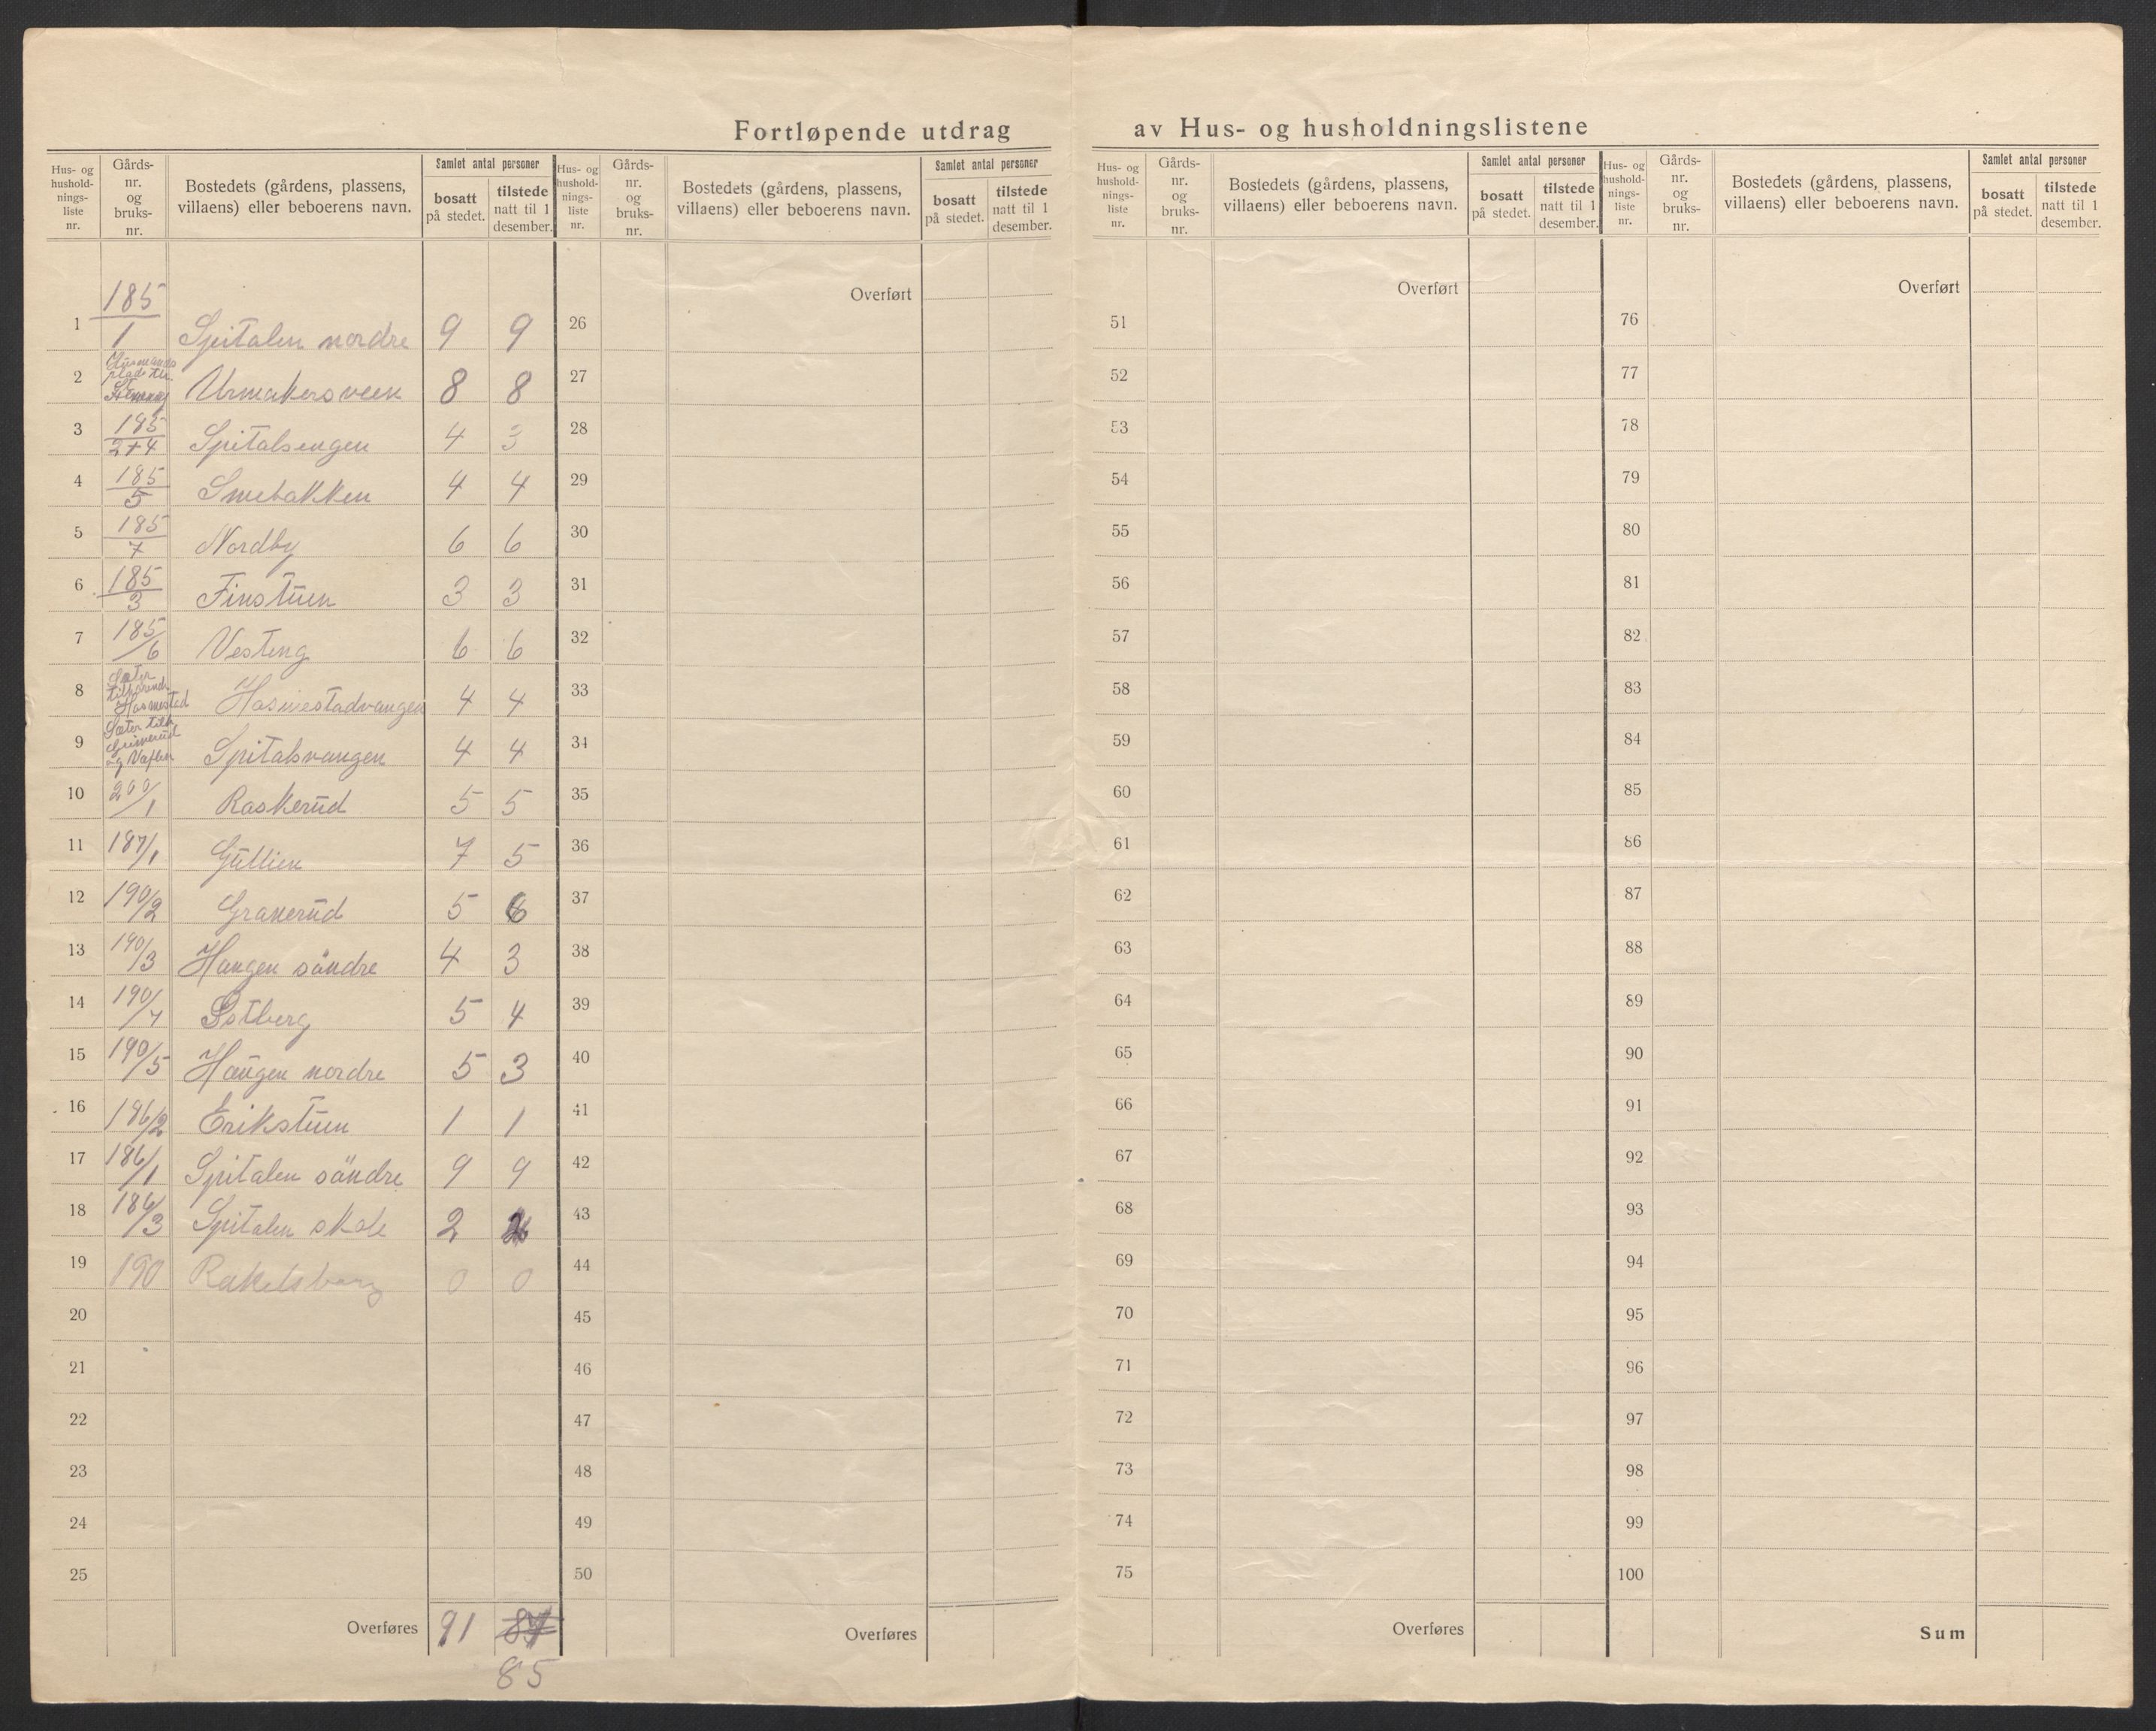 Fortløpende utdrag av Hus- og husholdningslistene
Hus- og hushold-nings-liste nr. | Gårds-nr. og bruks-nr. | Bostedets (gårdens, plassens, villaens) eller beboerens navn. | Samlet antal personer | bosatt på stedet. | tilstede natt til 1 desember.
1 185/1 Spitalen nordre 9 9
2 Husmands plads til Urmakersveen 8 8
3 185/2+4 Spitalsengen 4 3
4 185/5 Smebakken 4 4
5 185/7 Nordby 6 6
6 185/3 Finstuen 3 3
7 185/6 Vesteng 6 6
8 Sæter tilhørende Hasmestad Hasmestadvangen 4 4
9 Sæter tilh Grimerud og Spitalsvangen 4 4
10 200/1 Raskerud 5 5
11 187/1 Gullien 7 5
12 190/2 Granerud 5 6
13 190/3 Haugen söndre 4 3
14 190/4 Östberg 5 4
15 190/5 Haugen nordre 5 3
16 186/2 Erikstuen 1 1
17 186/1 Spitalen söndre 9 9
18 186/3 Spitalen skole 2 2
19 190 Rakelsberg 0 0
20
21
22
23
24
25
Overføres 91 87
85
Hus- og hushold-nings-liste nr. | Gårds-nr. og bruks-nr. | Bostedets (gårdens, plassens, villaens) eller beboerens navn. | Samlet antal personer | bosatt på stedet. | tilstede natt til 1 desember.
Overført
26
27
28
29
30
31
32
33
34
35
36
37
38
39
40
41
42
43
44
45
46
47
48
49
50
Overføres
Hus- og hushold-nings-liste nr. | Gårds-nr. og bruks-nr. | Bostedets (gårdens, plassens, villaens) eller beboerens navn. | Samlet antal personer | bosatt på stedet. | tilstede natt til 1 desember.
Overført
51
52
53
54
55
56
57
58
59
60
61
62
63
64
65
66
67
68
69
70
71
72
73
74
75
Overføres
Hus- og hushold-nings-liste nr. | Gårds-nr. og bruks-nr. | Bostedets (gårdens, plassens, villaens) eller beboerens navn. | Samlet antal personer | bosatt på stedet. | tilstede natt til 1 desember.
Overført
76
77
78
79
80
81
82
83
84
85
86
87
88
89
90
91
92
93
94
95
96
97
98
99
100
Sum